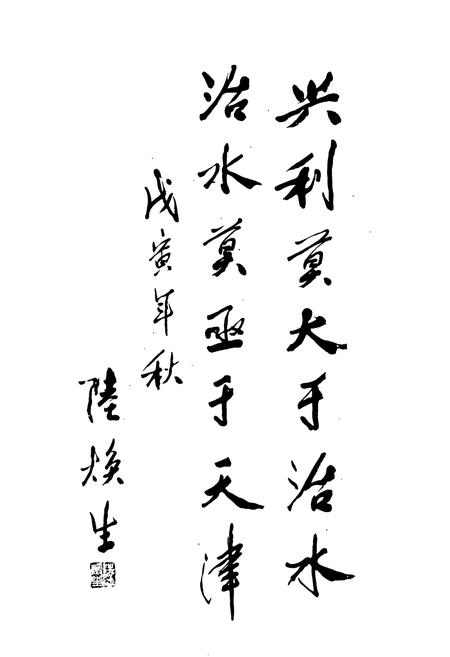 兴利莫大于治水
治水莫亟于天津
戊寅年秋
陸焕生